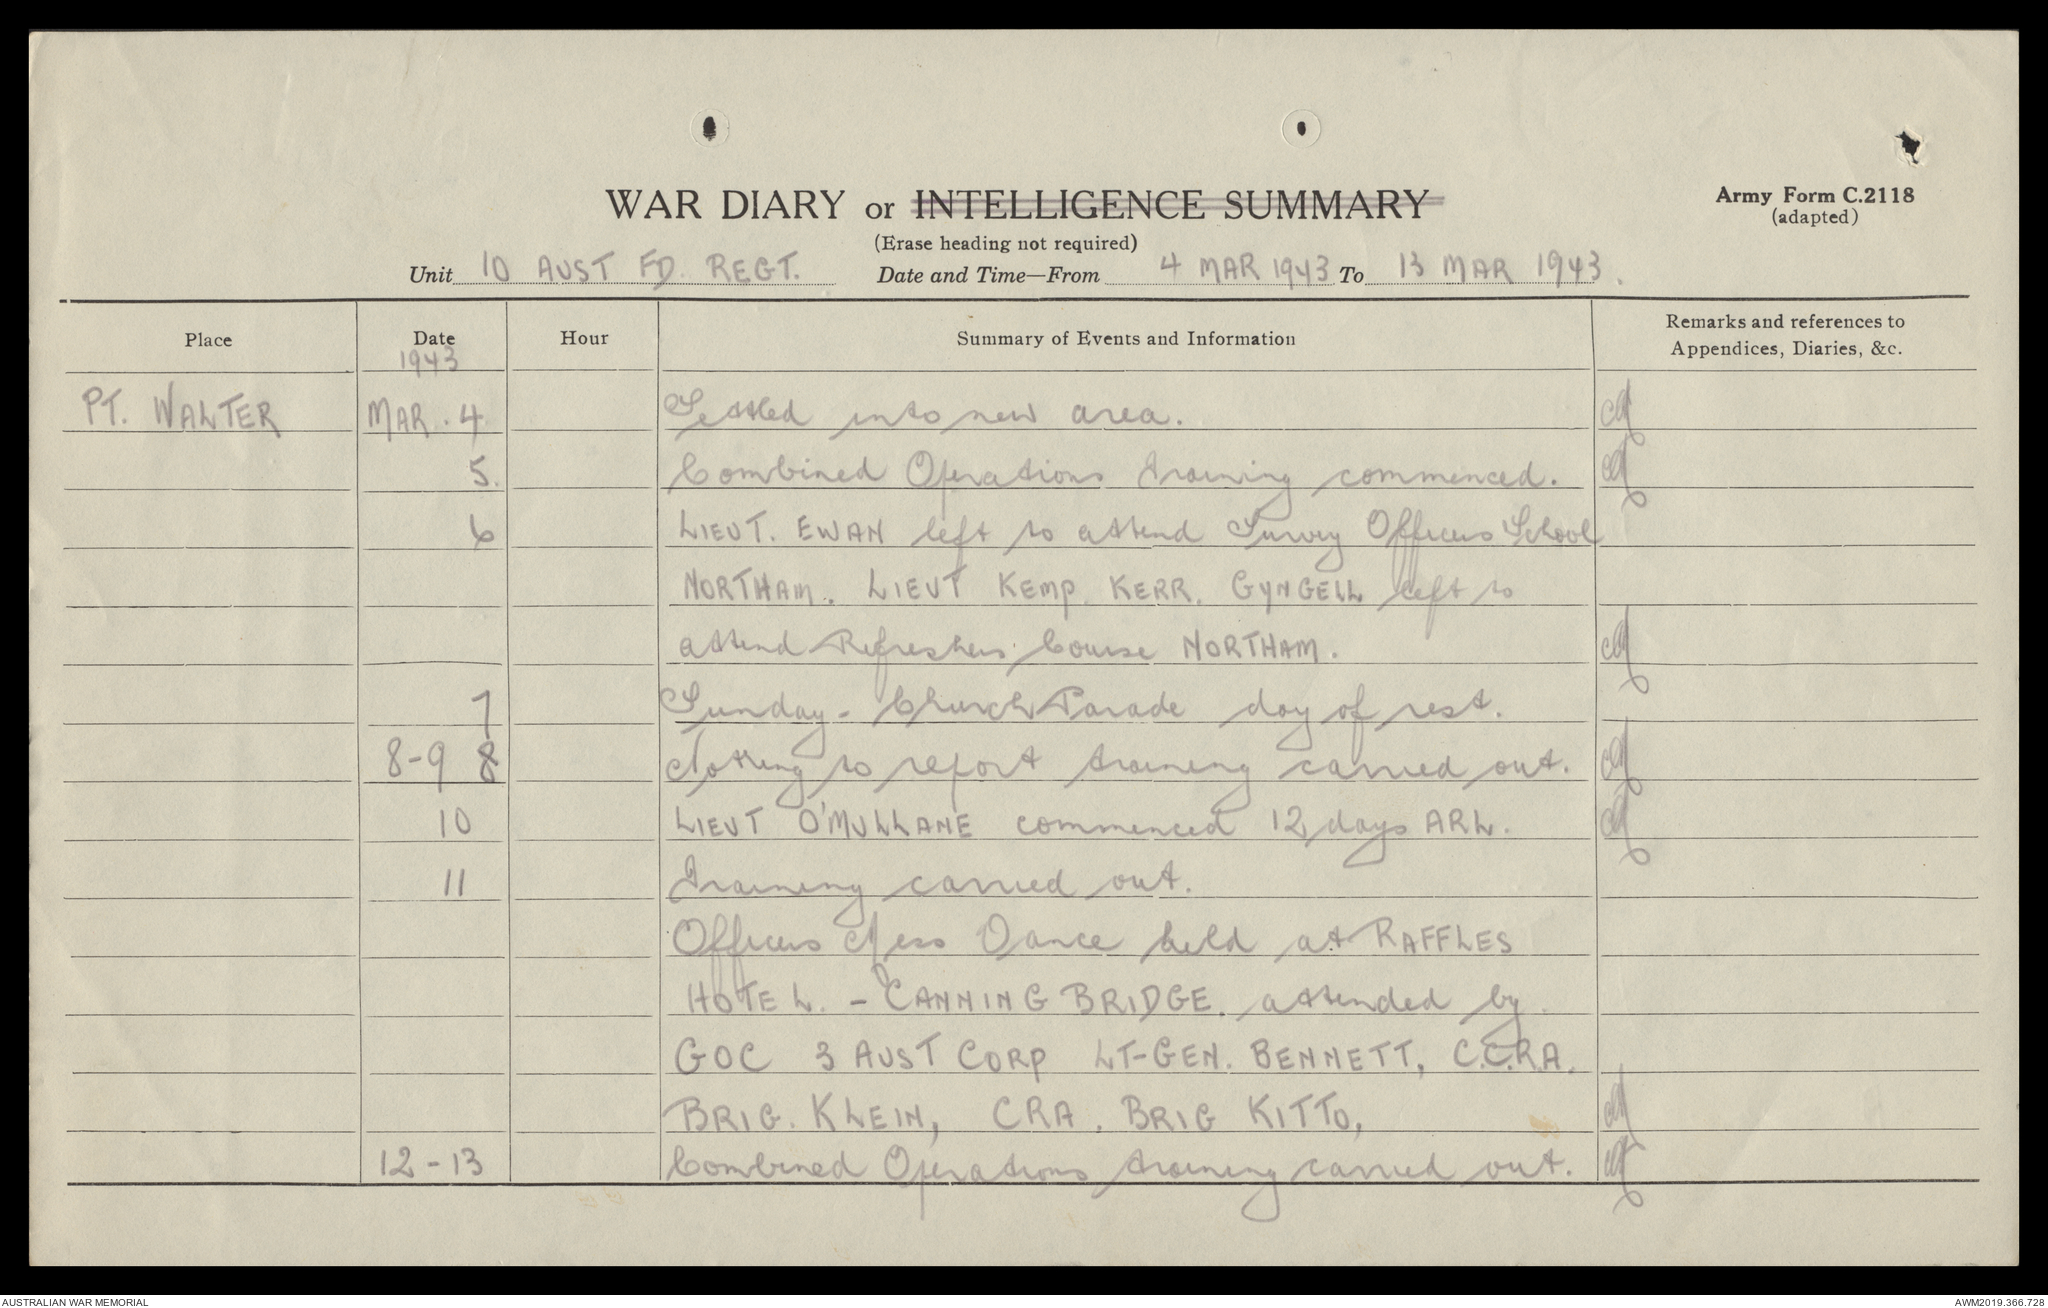 WAR DIARY or INTELLIGENCE SUMMARY
Army Form C.2118
(adapted)
(Erase heading not required)
Unit 10 AUST FD. REGT. Date and Time—From 4 MAR 1943 To 13 MAR 1943.
Place Date Hour Summary of Events and Information Remarks and references to
Appendices, Diaries, &c.
1943
PT. WALTER MAR. 4 Settled into new area.
5. Combined Operations Training commenced.
6 LIEUT. EWAN left to attend Survey Officers School
NORTHAM. LIEUT KEMP. KERR. GYNGELL left to
attend Refreshers Course NORTHAM.
7 Sunday - Church Parade day of rest.
8-9 8 Nothing to report training carried out.
10 LIEUT O'MULLANE commenced 12 days ARL.
11 Training carried out.
Officers Mess Dance held at RAFFLES
HOTEL. - CANNING BRIDGE. attended by
GOC 3 AUST CORP LT-GEN. BENNETT, C.C.R.A.
BRIG. KLEIN, CRA. BRIG KITTO,
12-13 Combined Operations training carried out.
AUSTRALIAN WAR MEMORIAL
AWM2019.366.728